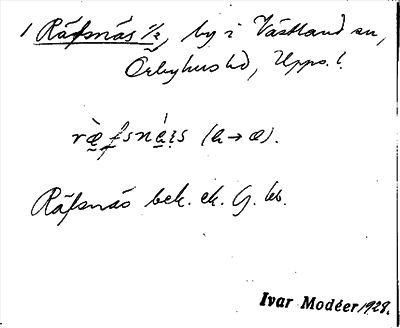 1 Räfsnäs 1/2, by i Västland sn,
Örbyhus hd, Upps. l.
ræ̀fsná̤is (a→æ).
Räfsnäs bek. ek. G. kb.
Ivar Modéer 1928.